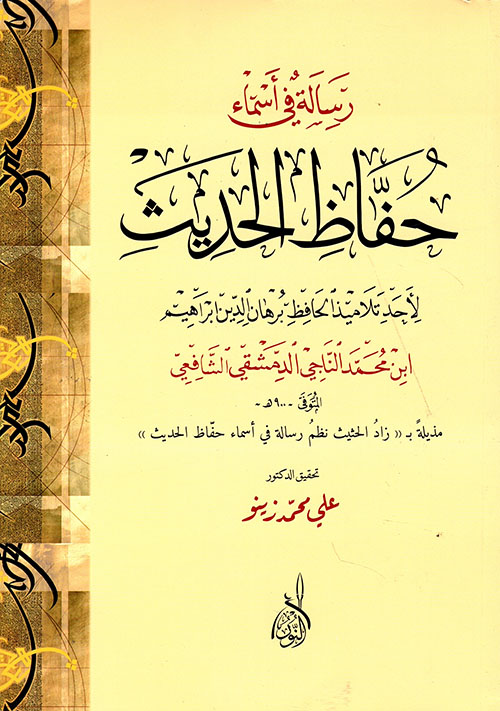 رِسَالَةٌ فِي أَسْمَاء
حُفَّاظِ الْحَدِيْثِ
لِأَحَدِ تَلَامِيْذِ الْحَافِظِ بُرْهَانِ الدِّيْنِ إِبْرَاهِيْم
ابْنِ مُحَمَّدٍ النَّاجِي الدِّمَشْقِيِّ الشَّافِعِيِّ
المُتَوَفَّى ـ ٩٠٠هـ ـ
مذيلةً بـ «زادُ الحثيث نظمُ رسالة في أسماء حفّاظ الحديث»
تحقيق الدكتور
علي محمّد زينو
النُّور